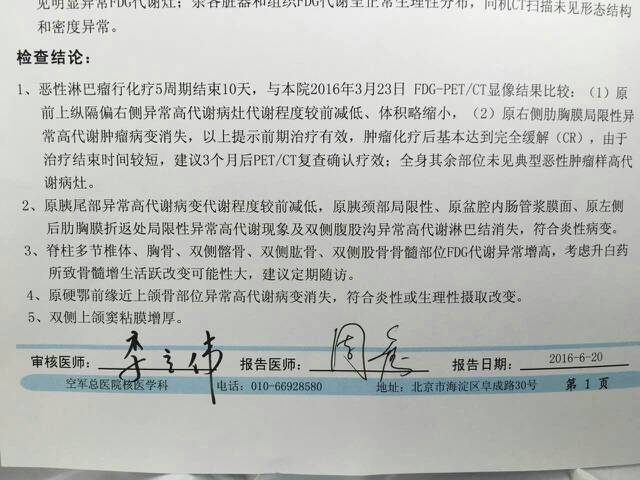 见明显异常FDG代谢灶；余各脏器和组织FDG代谢呈正常生理性分布，同机CT扫描未见形态结构
和密度异常。
检查结论：
1、恶性淋巴瘤行化疗5周期结束10天，与本院2016年3月23日 FDG-PET/CT显像结果比较：（1）原
前上纵隔偏右侧异常高代谢病灶代谢程度较前减低、体积略缩小，（2）原右侧肋胸膜局限性异
常高代谢肿瘤病变消失，以上提示前期治疗有效，肿瘤化疗后基本达到完全缓解（CR），由于
治疗结束时间较短，建议3个月后PET/CT复查确认疗效；全身其余部位未见典型恶性肿瘤样高代
谢病灶。
2、原胰尾部异常高代谢病变代谢程度较前减低，原胰颈部局限性、原盆腔内肠管浆膜面、原左侧
后肋胸膜折返处局限性异常高代谢现象及双侧腹股沟异常高代谢淋巴结消失，符合炎性病变。
3、脊柱多节椎体、胸骨、双侧髂骨、双侧肱骨、双侧股骨骨髓部位FDG代谢异常增高，考虑升白药
所致骨髓增生活跃改变可能性大，建议定期随访。
4、原硬鄂前缘近上颌骨部位异常高代谢病变消失，符合炎性或生理性摄取改变。
5、双侧上颌窦粘膜增厚。
审核医师：李立伟 报告医师： 报告日期：2016-6-20
空军总医院核医学科 电话：010-66928580 地址：北京市海淀区阜成路30号 第 1 页